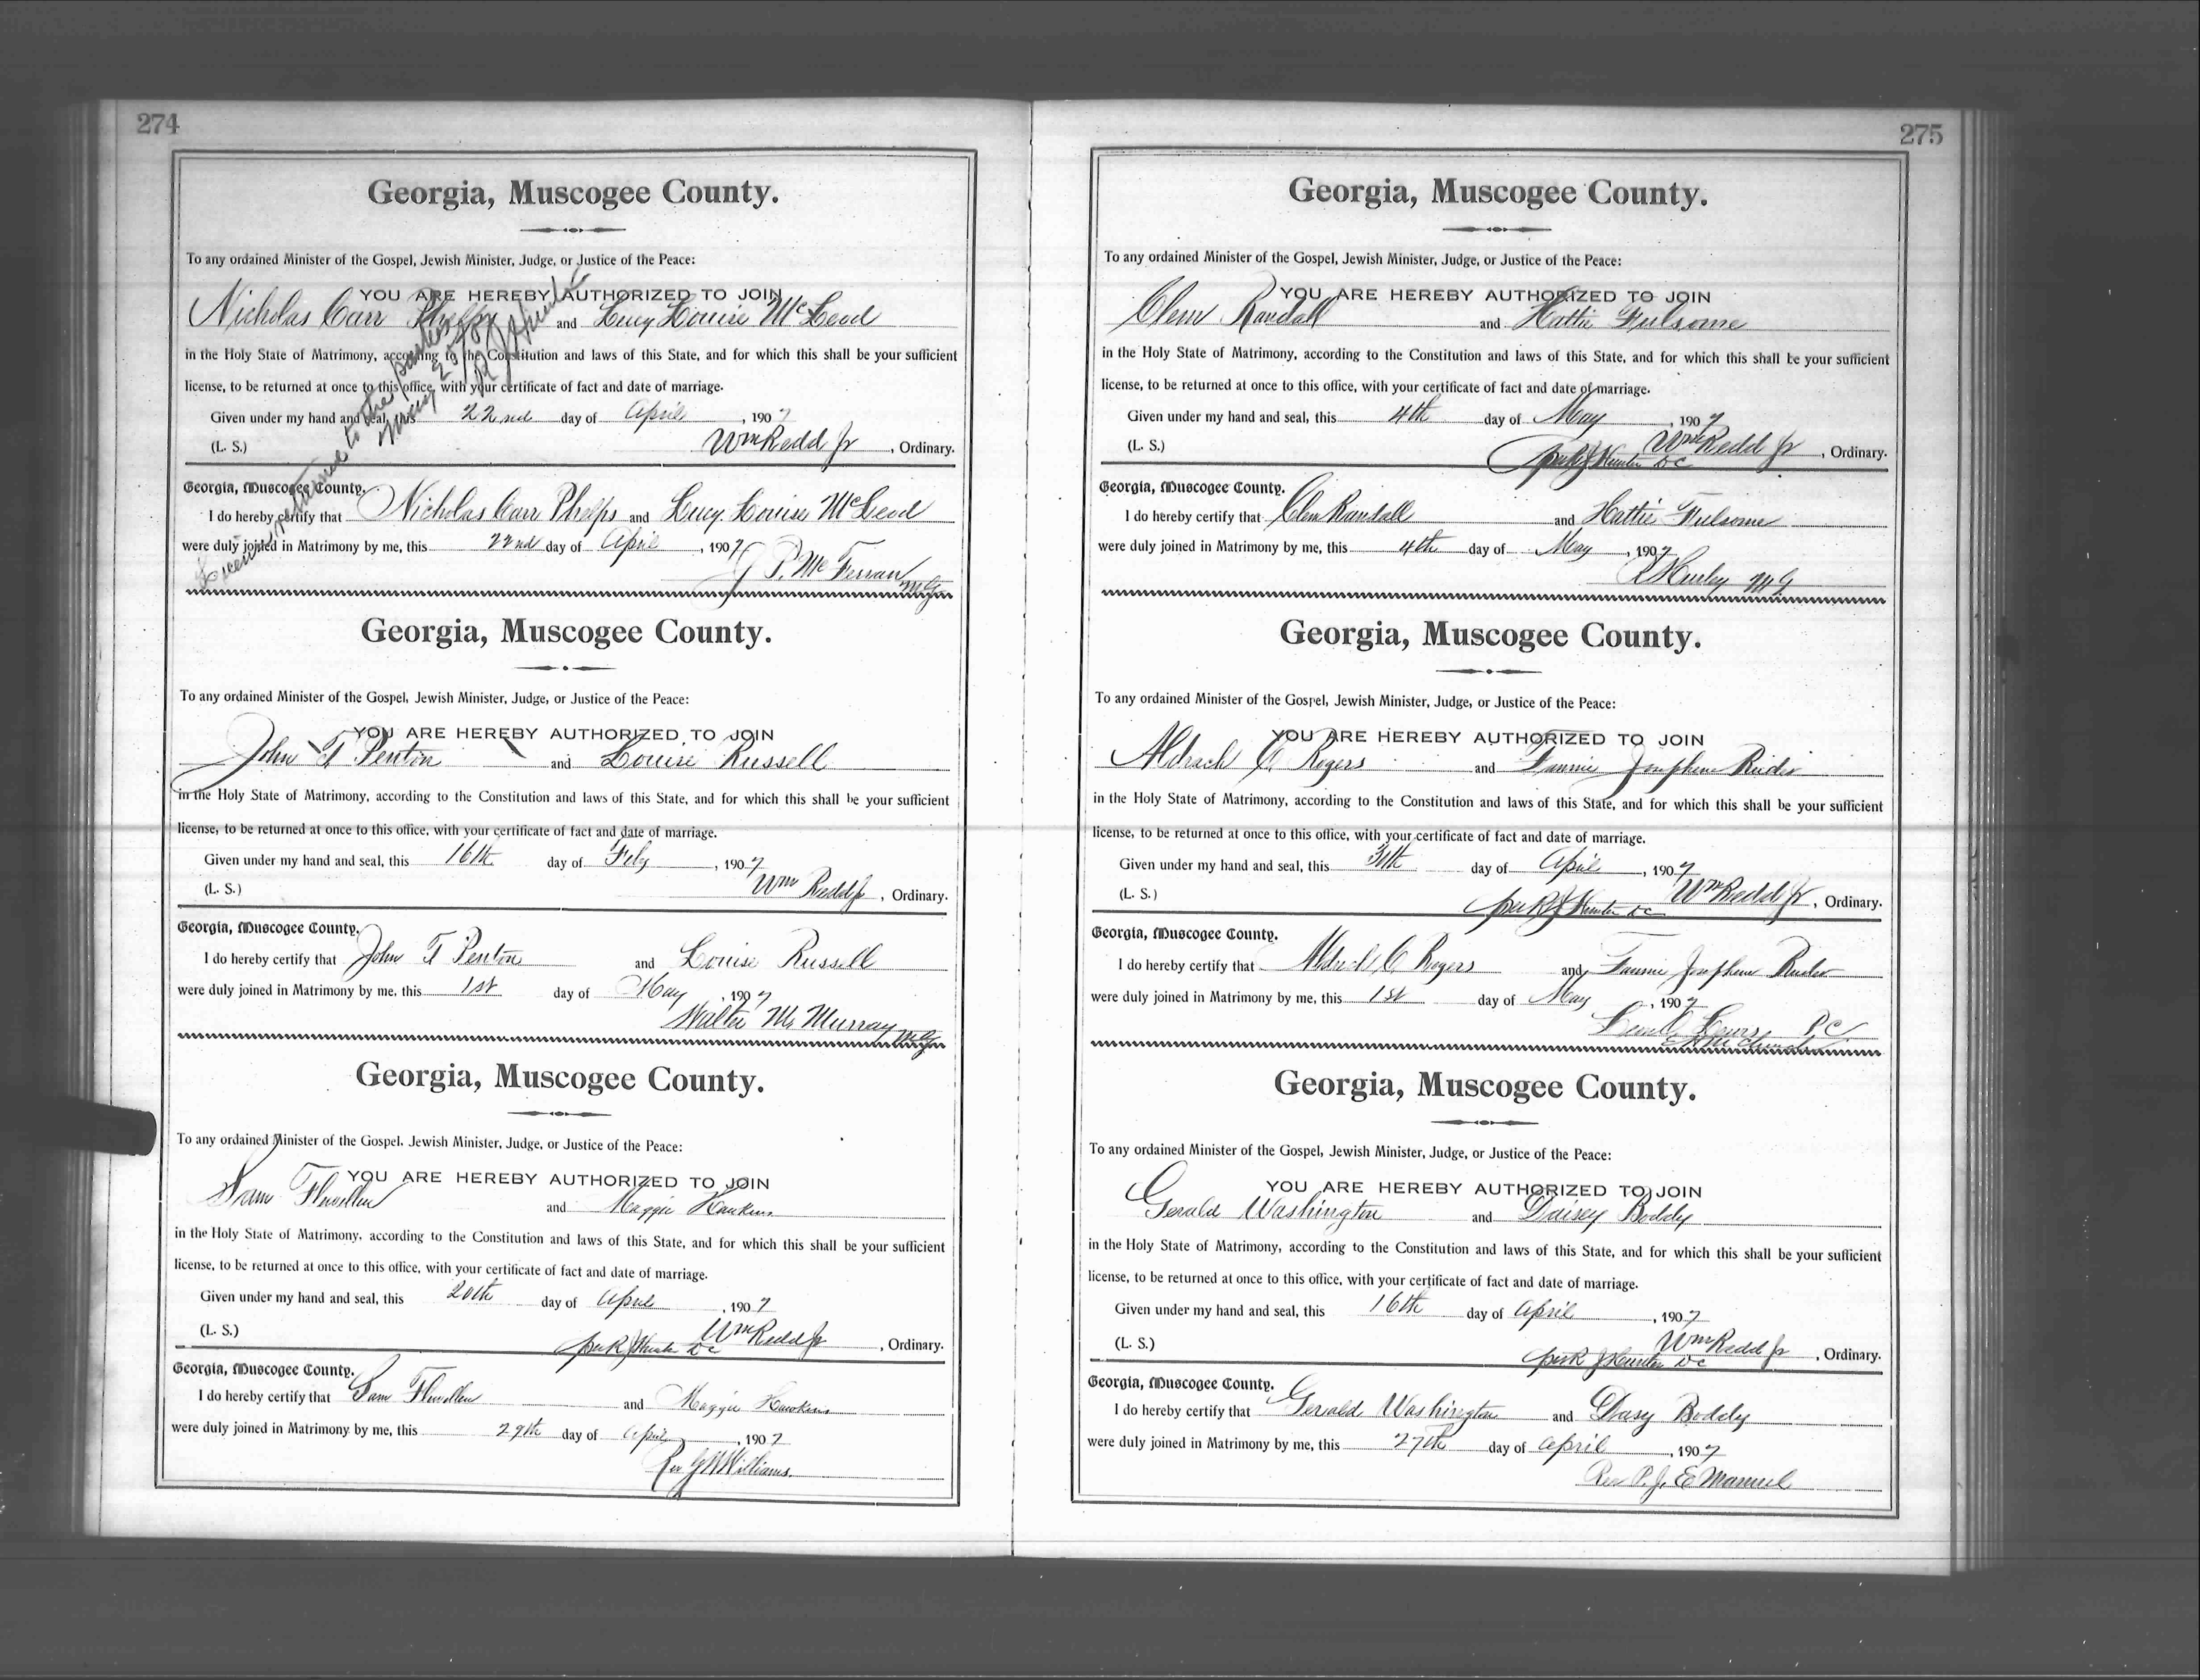 274
Georgia, Muscogee County.
To any ordained Minister of the Gospel, Jewish Minister, Judge, or Justice of the Peace:
YOU ARE HEREBY AUTHORIZED TO JOIN
Nicholas Carr Phelps and Lucy Louise McLeod
in the Holy State of Matrimony, according to the Constitution and laws of this State, and for which this shall be your sufficient
license, to be returned at once to this office, with your certificate of fact and date of marriage.
Given under my hand and seal, this 22nd day of April, 1907
(L. S.) Wm Redd Jr, Ordinary.
Georgia, Muscogee County.
I do hereby certify that Nicholas Carr Phelps and Lucy Louise McLeod
were duly joined in Matrimony by me, this 22nd day of April, 1907
J P. McFerran MG
License returned to the parties
Georgia, Muscogee County.
To any ordained Minister of the Gospel, Jewish Minister, Judge, or Justice of the Peace:
YOU ARE HEREBY AUTHORIZED TO JOIN
John T Penton and Louise Russell
in the Holy State of Matrimony, according to the Constitution and laws of this State, and for which this shall be your sufficient
license, to be returned at once to this office, with your certificate of fact and date of marriage.
Given under my hand and seal, this 16th day of Feby, 1907
(L. S.) Wm Redd Jr, Ordinary.
Georgia, Muscogee County.
I do hereby certify that John T Penton and Louise Russell
were duly joined in Matrimony by me, this 1st day of May, 1907
Walter M. Murray MG
Georgia, Muscogee County.
To any ordained Minister of the Gospel, Jewish Minister, Judge, or Justice of the Peace:
YOU ARE HEREBY AUTHORIZED TO JOIN
Sam Flewellen and Maggie Hawkins
in the Holy State of Matrimony, according to the Constitution and laws of this State, and for which this shall be your sufficient
license, to be returned at once to this office, with your certificate of fact and date of marriage.
Given under my hand and seal, this 20th day of April, 1907
(L. S.) Wm Redd Jr, Ordinary.
per R J Hunter DC
Georgia, Muscogee County.
I do hereby certify that Sam Flewellen and Maggie Hawkins
were duly joined in Matrimony by me, this 29th day of April, 1907
Rev G W Williams
275
Georgia, Muscogee County.
To any ordained Minister of the Gospel, Jewish Minister, Judge, or Justice of the Peace:
YOU ARE HEREBY AUTHORIZED TO JOIN
Clem Randall and Hattie Fulsome
in the Holy State of Matrimony, according to the Constitution and laws of this State, and for which this shall be your sufficient
license, to be returned at once to this office, with your certificate of fact and date of marriage.
Given under my hand and seal, this 4th day of May, 1907
(L. S.) Wm Redd Jr, Ordinary.
per R J Hunter DC
Georgia, Muscogee County.
I do hereby certify that Clem Randall and Hattie Fulsome
were duly joined in Matrimony by me, this 4th day of May, 1907
Hurley MG
Georgia, Muscogee County.
To any ordained Minister of the Gospel, Jewish Minister, Judge, or Justice of the Peace:
YOU ARE HEREBY AUTHORIZED TO JOIN
Aldrach C Rogers and Fannie Josephine
in the Holy State of Matrimony, according to the Constitution and laws of this State, and for which this shall be your sufficient
license, to be returned at once to this office, with your certificate of fact and date of marriage.
Given under my hand and seal, this 30th day of April, 1907
(L. S.) Wm Redd Jr, Ordinary.
per R J Hunter DC
Georgia, Muscogee County.
I do hereby certify that Aldrach C Rogers and Fannie Josephine
were duly joined in Matrimony by me, this 1st day of May, 1907
P.C.
Georgia, Muscogee County.
To any ordained Minister of the Gospel, Jewish Minister, Judge, or Justice of the Peace:
YOU ARE HEREBY AUTHORIZED TO JOIN
Gerald Washington and Daisey Boddy
in the Holy State of Matrimony, according to the Constitution and laws of this State, and for which this shall be your sufficient
license, to be returned at once to this office, with your certificate of fact and date of marriage.
Given under my hand and seal, this 16th day of April, 1907
(L. S.) Wm Redd Jr, Ordinary.
per R J Hunter DC
Georgia, Muscogee County.
I do hereby certify that Gerald Washington and Dasy Boddy
were duly joined in Matrimony by me, this 27th day of April, 1907
Rev P. J. Emanuel